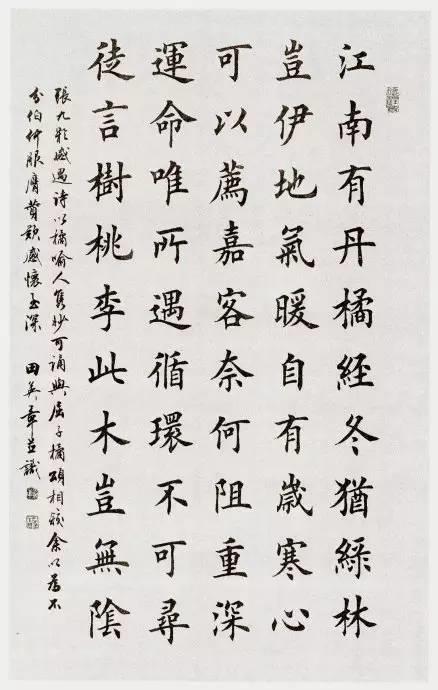 江南有丹橘経冬猶緑林
豈伊地氣暖自有歲寒心
可以薦嘉客奈何阻重深
運命唯所遇循環不可尋
徒言樹桃李此木豈無陰
張九齡感遇詩以橘喻人雋妙可誦與屈子橘頌相較余以為不
分伯仲服膺贊歎感懷至深 田英章並識